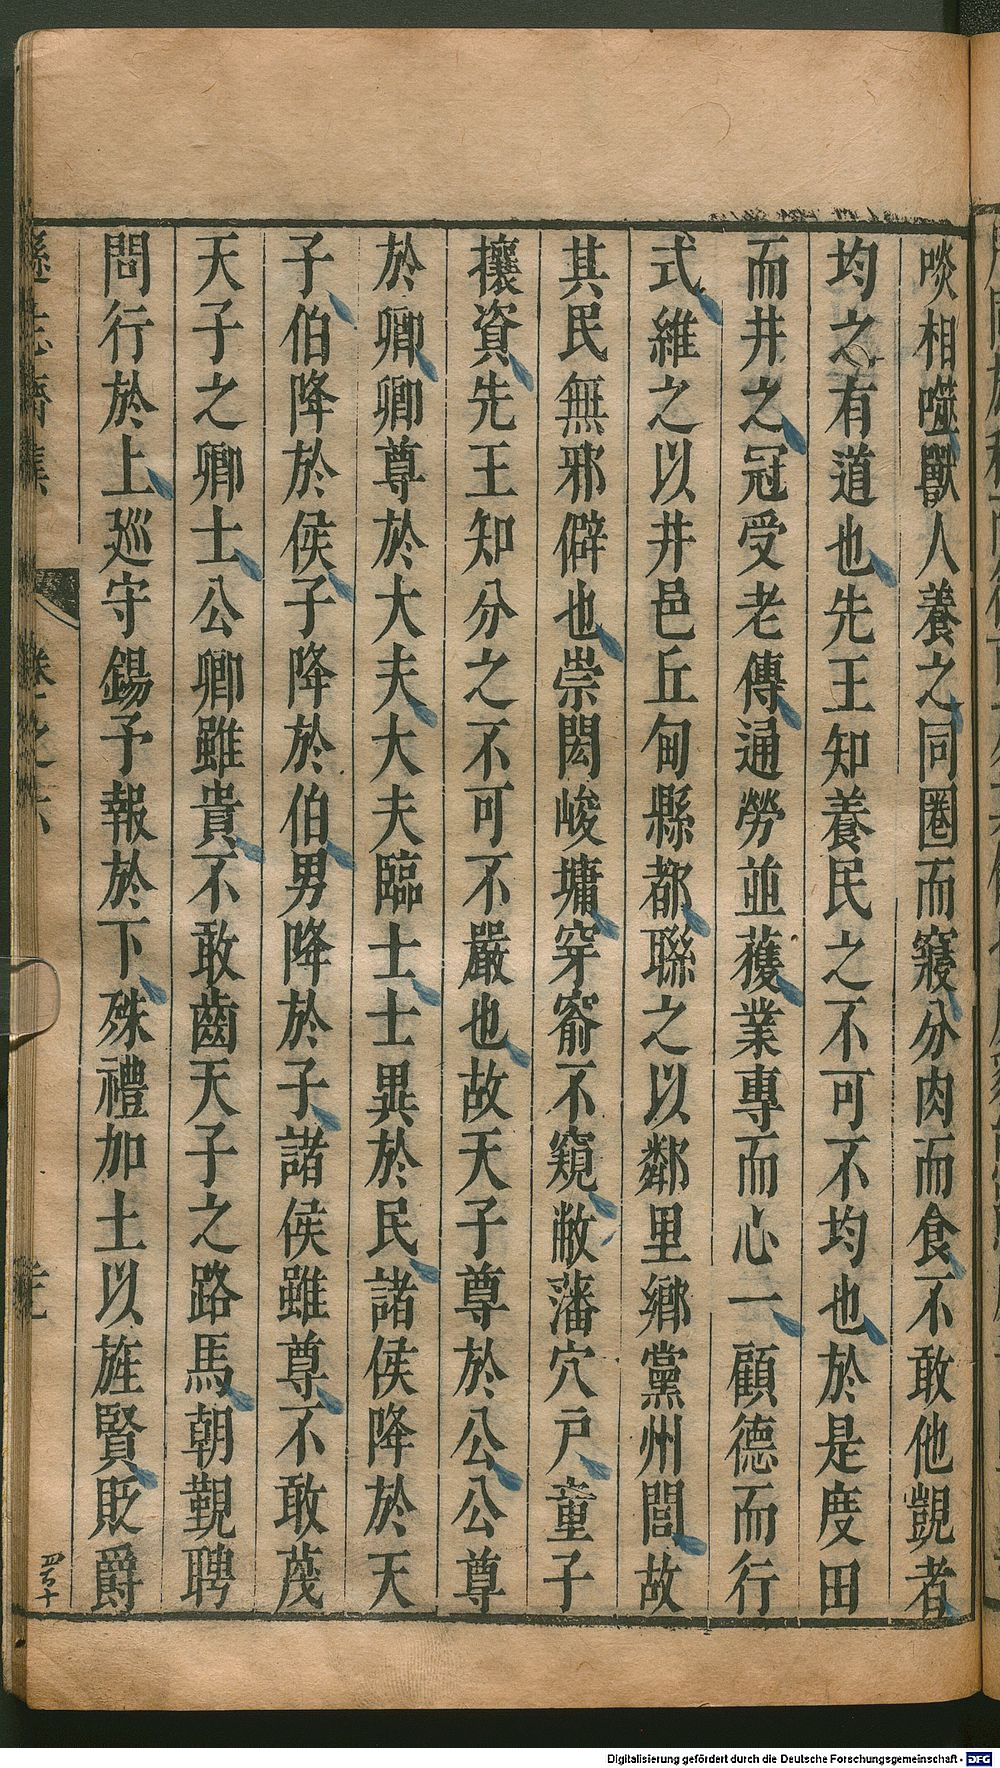 啖相噬獸人養之同圈而寢分肉而食不敢他覬者
均之有道也先王知養民之不可不均也於是度田
而井之冠受老傳通勞並獲業專而心一顧德而行
式維之以井邑丘甸縣都聯之以鄰里鄉黨州閭故
其民無邪僻也崇閎峻墉穿窬不窺敝藩穴戶童子
攘資先王知分之不可不嚴也故天子尊於公公尊
於卿卿尊於大夫大夫臨士士異於民諸侯降於天
子伯降於侯子降於伯男降於子諸侯雖尊不敢蔑
天子之卿士公卿雖貴不敢齒天子之路馬朝覲聘
問行於上廵守錫予報於下殊禮加土以旌賢貶爵
卷之六
Digitalisierung gefördert durch die Deutsche Forschungsgemeinschaft - DFG